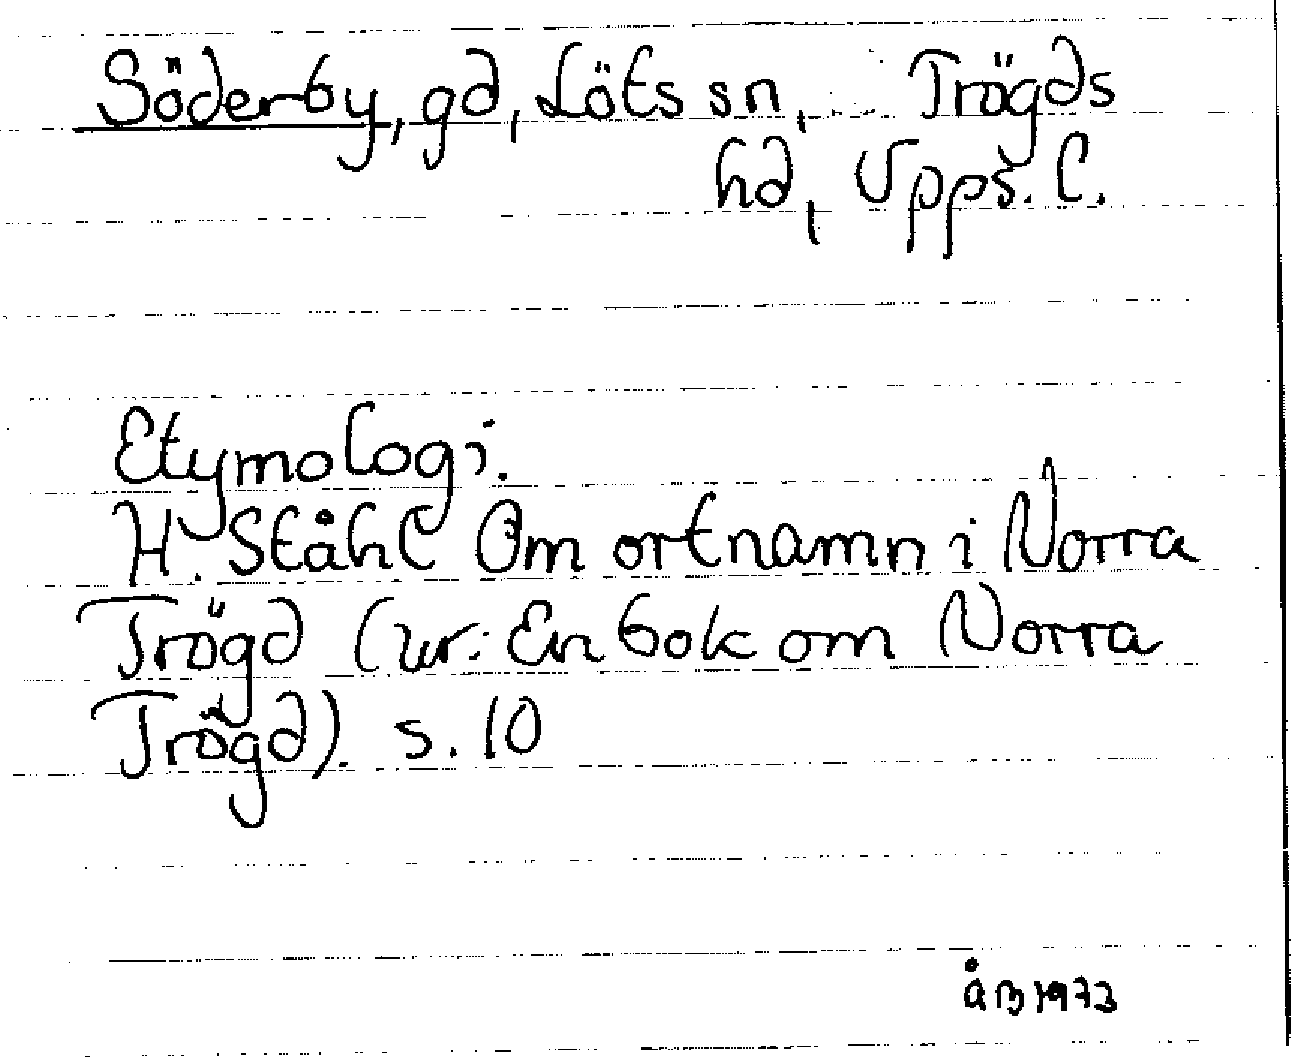 Söderby, gd, Löts sn, Trögds
hd, Upps. l.
Etymologi.
H. Ståhl Om ortnamn i Norra
Trögd (ur: En bok om Norra
Trögd). s. 10
åB 1973